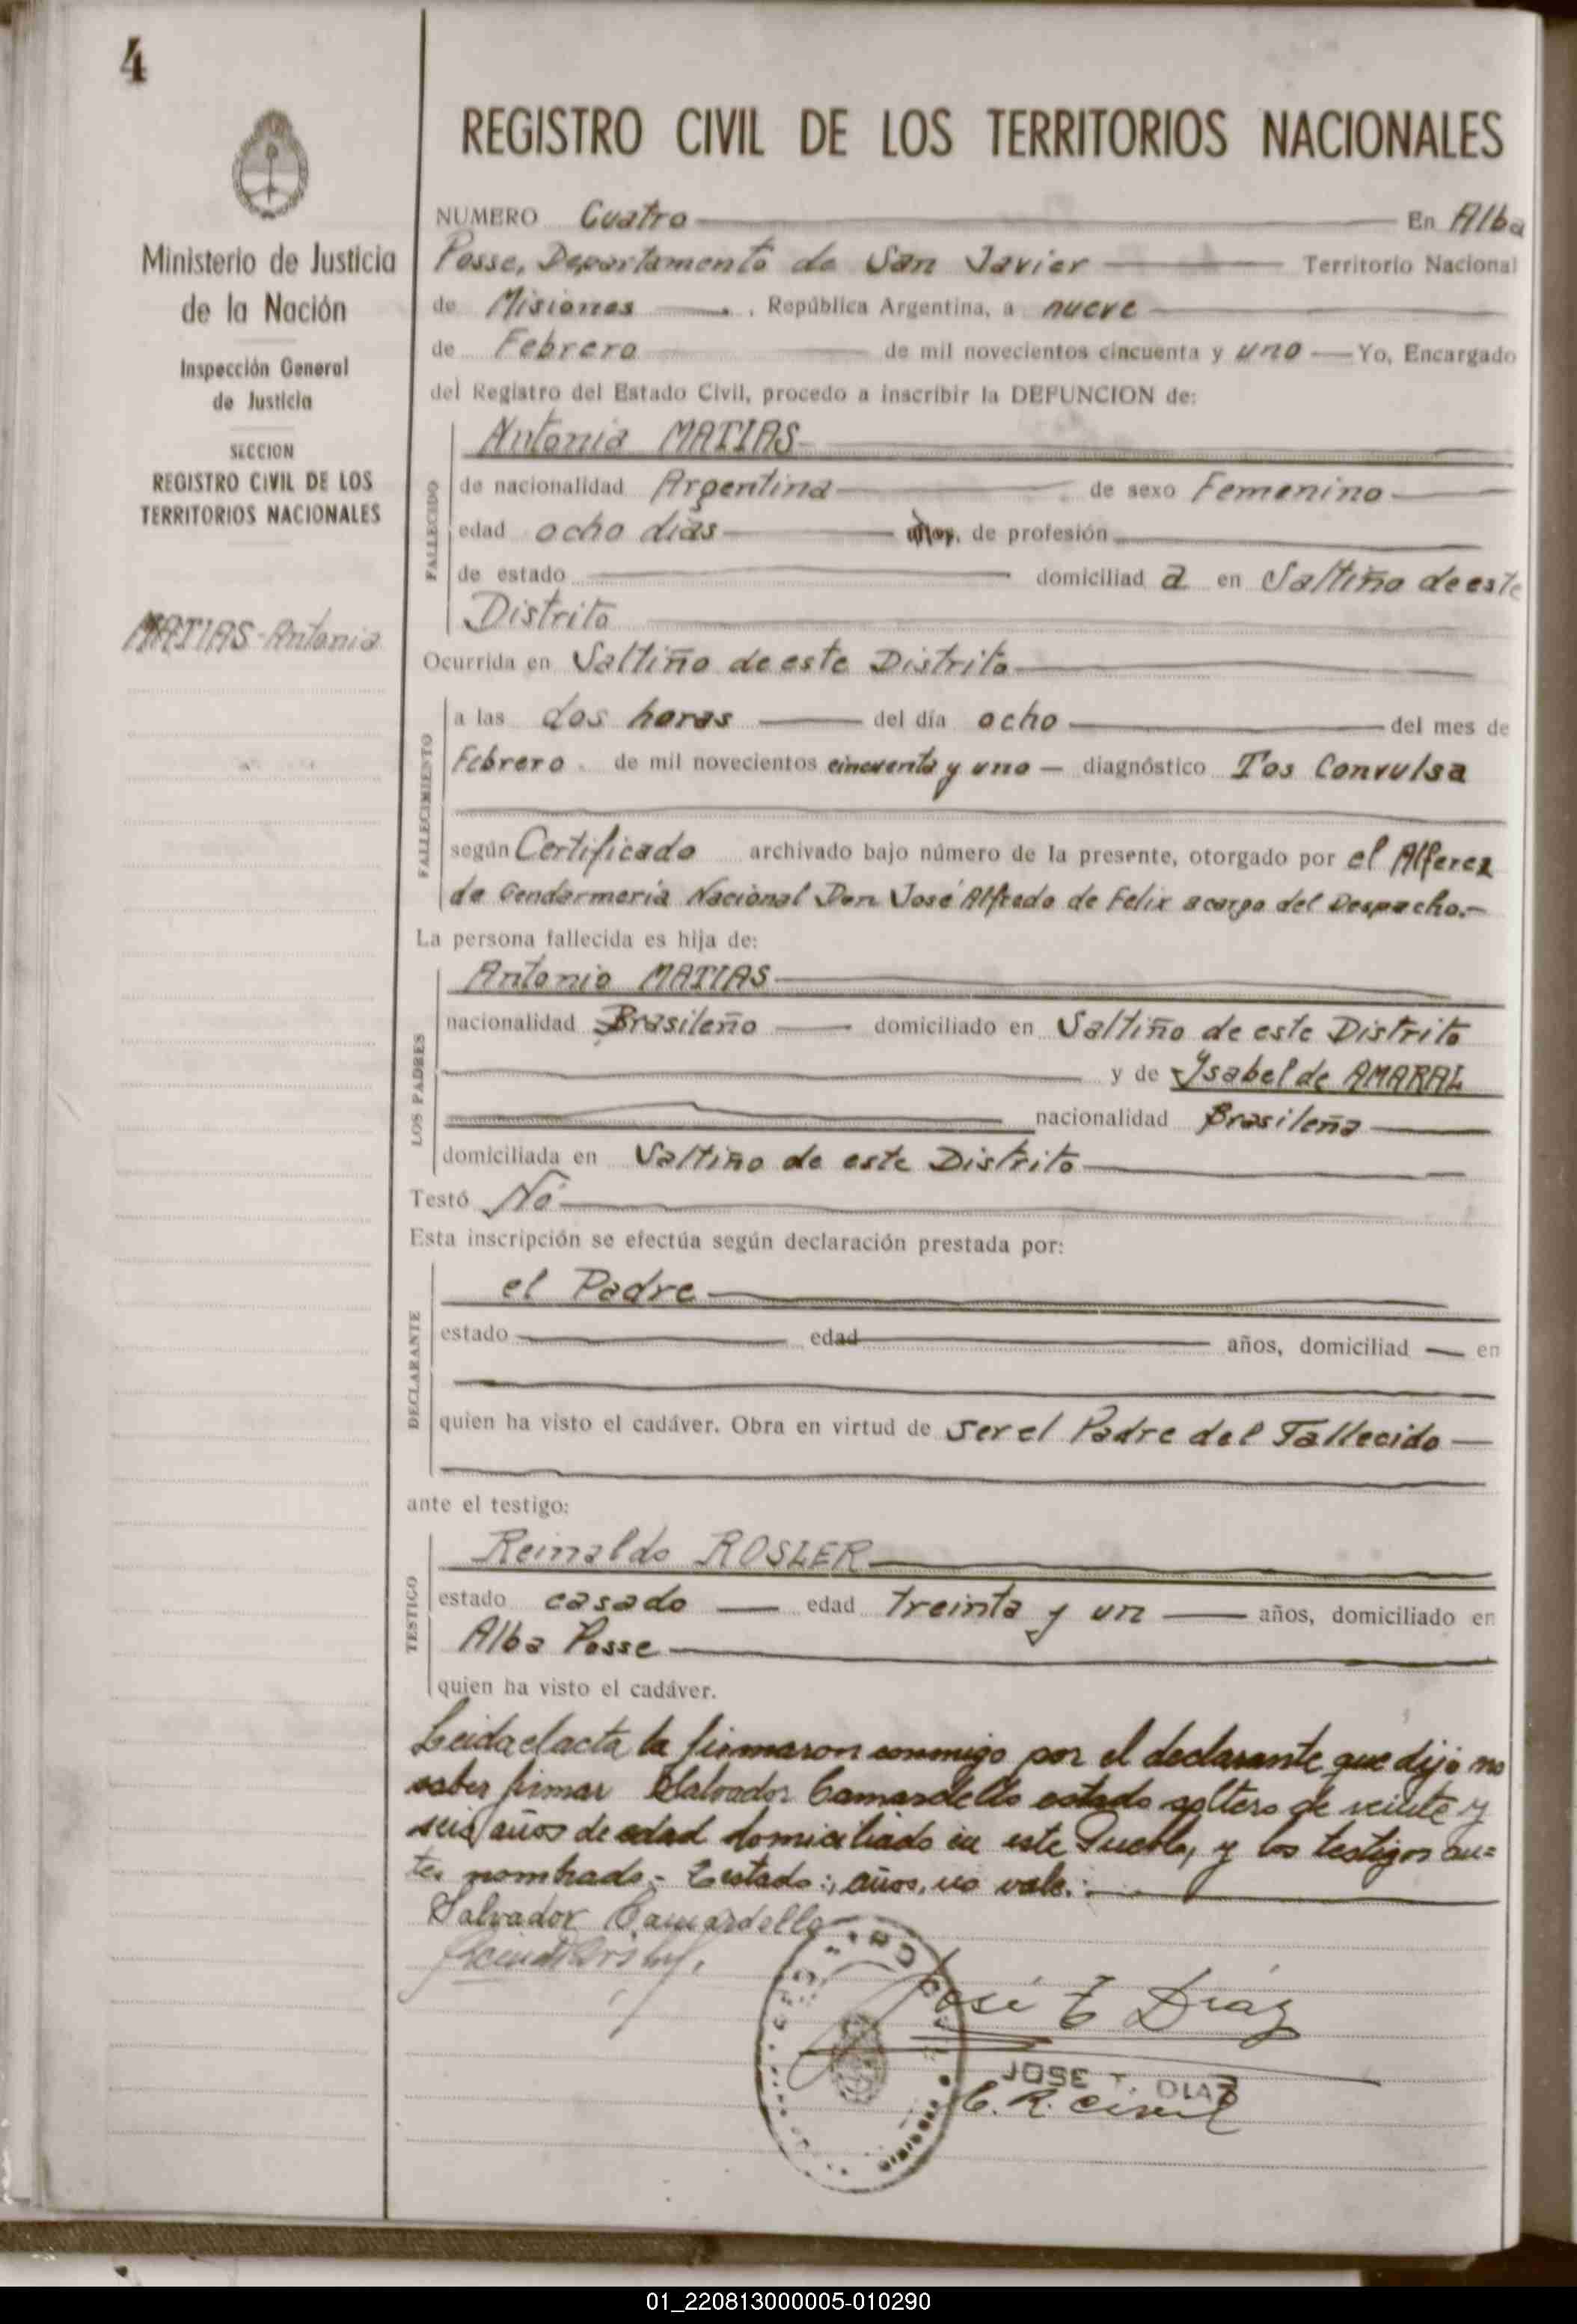 4
REGISTRO CIVIL DE LOS TERRITORIOS NACIONALES
Ministerio de Justicia
de la Nación
Inspección General
de Justicia
SECCION
REGISTRO CIVIL DE LOS
TERRITORIOS NACIONALES
MATIAS-Antonia
NUMERO Cuatro En Alba
Posse, Departamento de San Javier Territorio Nacional
de Misiones . República Argentina, a nueve
de Febrero de mil novecientos cincuenta y uno Yo, Encargado
del Registro del Estado Civil, procedo a inscribir la DEFUNCION de:
FALLECIDO
Antonia MATIAS
de nacionalidad Argentina de sexo Femenino
edad ocho dias años, de profesión
de estado domiciliad a en Saltiño de este
Distrito
Ocurrida en Saltiño de este Distrito
FALLECIMIENTO
a las dos horas del día ocho del mes de
Febrero de mil novecientos cincuenta y uno diagnóstico Tos Convulsa
según Certificado archivado bajo número de la presente, otorgado por el Alferez
de Gendarmeria Nacional Don José Alfredo de Felix a cargo del Despacho.-
La persona fallecida es hija de:
LOS PADRES
Antonio MATIAS
nacionalidad Brasileño domiciliado en Saltiño de este Distrito
y de Ysabel de AMARAL
nacionalidad Brasileña
domiciliada en Saltiño de este Distrito
Testó No
Esta inscripción se efectúa según declaración prestada por:
DECLARANTE
el Padre
estado edad años, domiciliad en
quien ha visto el cadáver. Obra en virtud de ser el Padre del Fallecido
ante el testigo:
TESTIGO
Reinaldo ROSLER
estado casado edad treinta y un años, domiciliado en
Alba Posse
quien ha visto el cadáver.
Leida el acta la firmaron conmigo por el declarante que dijo no
saber firmar Salvador Camardello estado soltero de veinte y
seis años de edad domiciliado en este Pueblo, y los testigos an=
tes nombrado.- Testado:, años, no vale.:
Salvador Camardello
José T Diaz
JOSE T. DIAZ
E. R. Civil
01_220813000005-010290